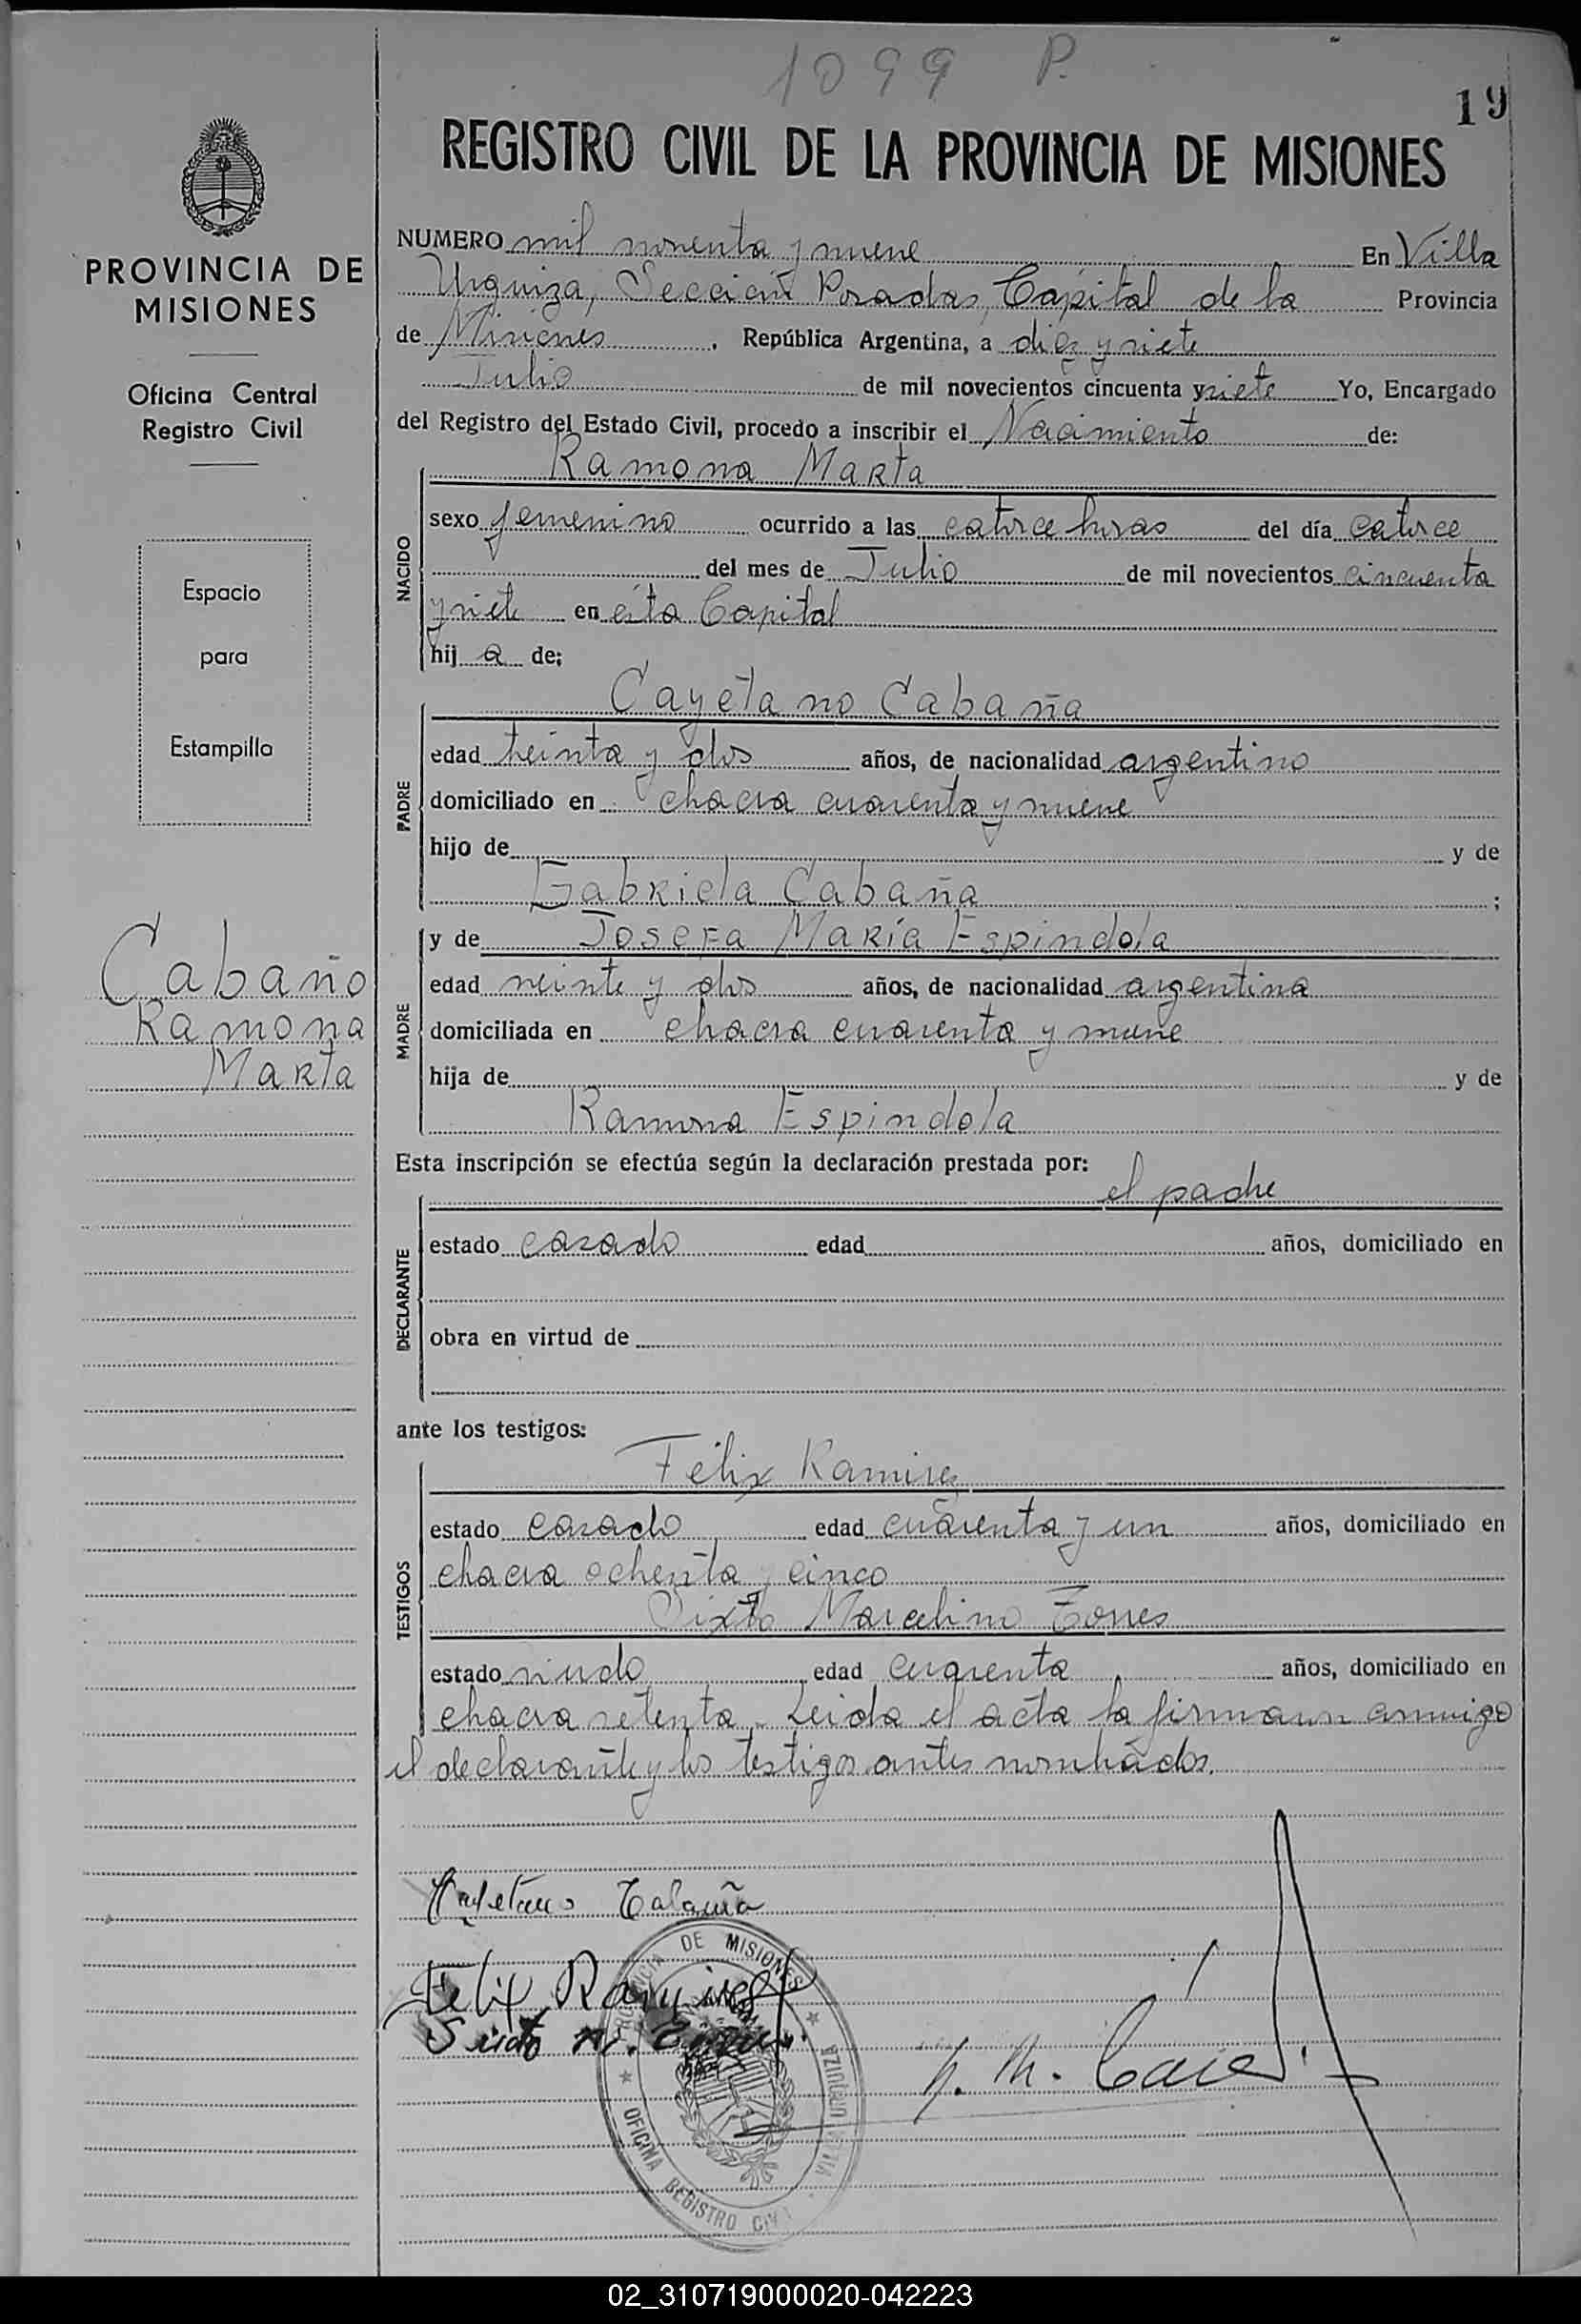 1099 P.
19
REGISTRO CIVIL DE LA PROVINCIA DE MISIONES
PROVINCIA DE
MISIONES
Oficina Central
Registro Civil
Espacio
para
Estampilla
Cabaño
Ramona
Marta
NUMERO mil noventa y nueve En Villa
Urquiza, Sección Posadas, Capital de la Provincia
de Misiones, República Argentina, a diez y siete
Julio de mil novecientos cincuenta y siete Yo, Encargado
del Registro del Estado Civil, procedo a inscribir el Nacimiento de:
NACIDO
Ramona Marta
sexo femenino ocurrido a las catorce horas del día catorce
del mes de Julio de mil novecientos cincuenta
y siete en ésta Capital
hij a de;
PADRE
Cayetano Cabaña
edad treinta y dos años, de nacionalidad argentino
domiciliado en chacra cuarenta y nueve
hijo de y de
Gabriela Cabaña ;
MADRE
y de Josefa María Espindola
edad veinte y dos años, de nacionalidad argentina
domiciliada en chacra cuarenta y nueve
hija de y de
Ramona Espindola
Esta inscripción se efectúa según la declaración prestada por:
el padre
DECLARANTE
estado casado edad años, domiciliado en
obra en virtud de
ante los testigos:
TESTIGOS
Félix Ramirez
estado casado edad cuarenta y un años, domiciliado en
chacra ochenta y cinco
Sixto Marcelino Torres
estado viudo edad cuarenta años, domiciliado en
chacra setenta. Leida el acta la firman conmigo
el declarante y los testigos antes nombrados.
Cayetano Cabaña
Felix Ramirez
Sixto M. Torres
PROVINCIA DE MISIONES
OFICINA REGISTRO CIVIL
VILLA URQUIZA
02_310719000020-042223